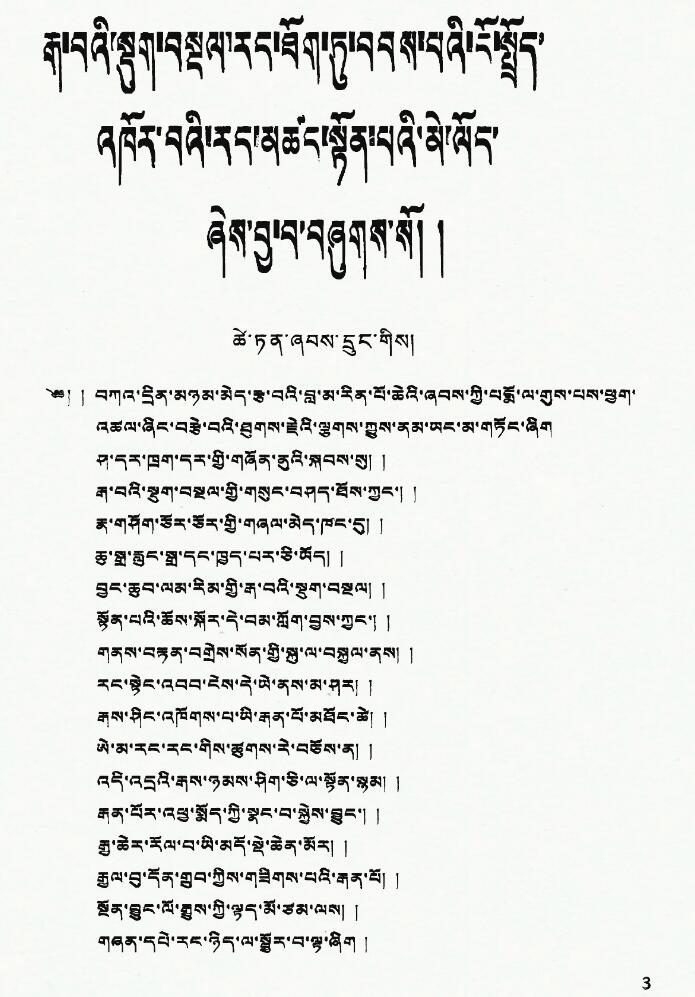 རྒ་བའི་སྡུག་བསྔལ་རང་ཐོག་ཏུ་བབས་པའི་ངོ་སྤྲོད་
འཁོར་བའི་རང་མཚང་སྟོན་པའི་མེ་ལོང་
ཞེས་བྱ་བ་བཞུགས་སོ། །
ཚེ་ཏན་ཞབས་དྲུང་གིས།
༄༅། །བཀའ་དྲིན་མཉམ་མེད་རྩ་བའི་བླ་མ་རིན་པོ་ཆེའི་ཞབས་ཀྱི་པདྨོ་ལ་གུས་པས་ཕྱག་
འཚལ་ཞིང་བརྩེ་བའི་ཐུགས་རྗེའི་ལྕགས་ཀྱུས་ནམ་ཡང་མ་གཏོང་ཞིག
ཤ་དར་ཁྲག་དར་གྱི་གཞོན་ནུའི་སྐབས་སུ། །
རྒ་བའི་སྡུག་བསྔལ་གྱི་གསུང་བཤད་ཐོས་ཀྱང་། །
རྣ་གཤོག་ཙོར་ཙོར་གྱི་གཞལ་མེད་ཁང་དུ། །
ཆུ་སྒྲ་རླུང་སྒྲ་དང་ཁྱད་པར་ཅི་ཡོད། །
བྱང་ཆུབ་ལམ་རིམ་གྱི་རྒ་བའི་སྡུག་བསྔལ། །
སྟོན་པའི་ཆོས་སྐོར་དེ་བམ་ཀློག་བྱས་ཀྱང་། །
གནས་བརྟན་བགྲེས་སོན་གྱི་སྐུ་ལ་བསྐུལ་ནས། །
རང་སྟེང་འབབ་ངེས་དེ་ཡེ་ནས་མ་ཤར། །
རྒས་ཤིང་འཁོགས་པ་ཡི་རྒན་པོ་མཐོང་ཚེ། །
ཨེ་མ་རང་རང་གིས་ཚུགས་རེ་བཅོས་ན། །
འདི་འདྲའི་རྒས་ཉམས་ཤིག་ཅི་ལ་སྟོན་སྙམ། །
རྒན་པོར་འཕྱ་སྨོད་ཀྱི་སྣང་བ་སྐྱེས་བྱུང་། །
རྒྱ་ཆེར་རོལ་བ་ཡི་མདོ་སྡེ་ཆེན་མོར། །
རྒྱལ་བུ་དོན་གྲུབ་ཀྱིས་གཟིགས་པའི་རྒན་པོ། །
སྔོན་བྱུང་ལོ་རྒྱུས་ཀྱི་ལྟད་མོ་ཙམ་ལས། །
གཞན་དཔེ་རང་ཉིད་ལ་སྦྱོར་བ་ལྟ་ཞིག །
3